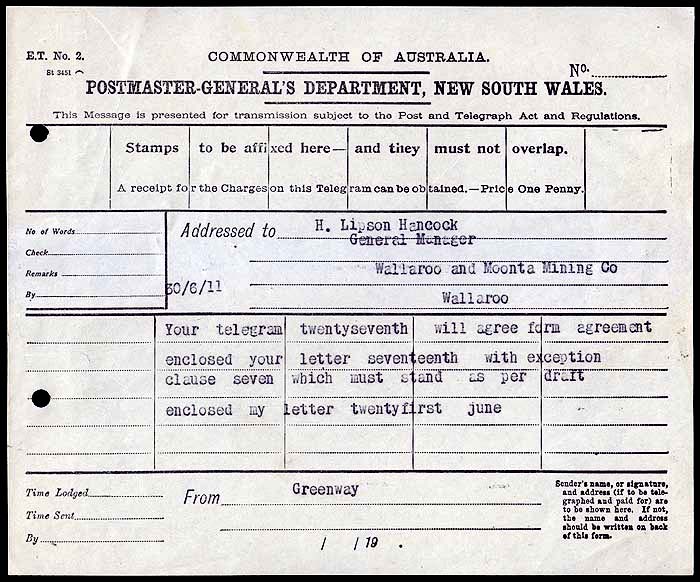 E.T. No. 2.
St 3451
COMMONWEALTH OF AUSTRALIA.
No.
POSTMASTER-GENERAL'S DEPARTMENT, NEW SOUTH WALES.
This Message is presented for transmission subject to the Post and Telegraph Act and Regulations.
Stamps to be affixed here— and they must not overlap.
A receipt for the Charges on this Telegram can be obtained.—Price One Penny.
No of Words
Check
Remarks
By
Addressed to H. Lipson Hancock
General Manager
Wallaroo and Moonta Mining Co
30/6/11
Wallaroo
Your telegram twentyseventh will agree form agreement
enclosed your letter seventeenth with exception
clause seven which must stand as per draft
enclosed my letter twentyfirst june
Time Lodged
Time Sent
By
From Greenway
/ /19 .
Sender's name, or signature,
and address (if to be tele-
graphed and paid for) are
to be shown here. If not,
the name and address
should be written on back
of this form.